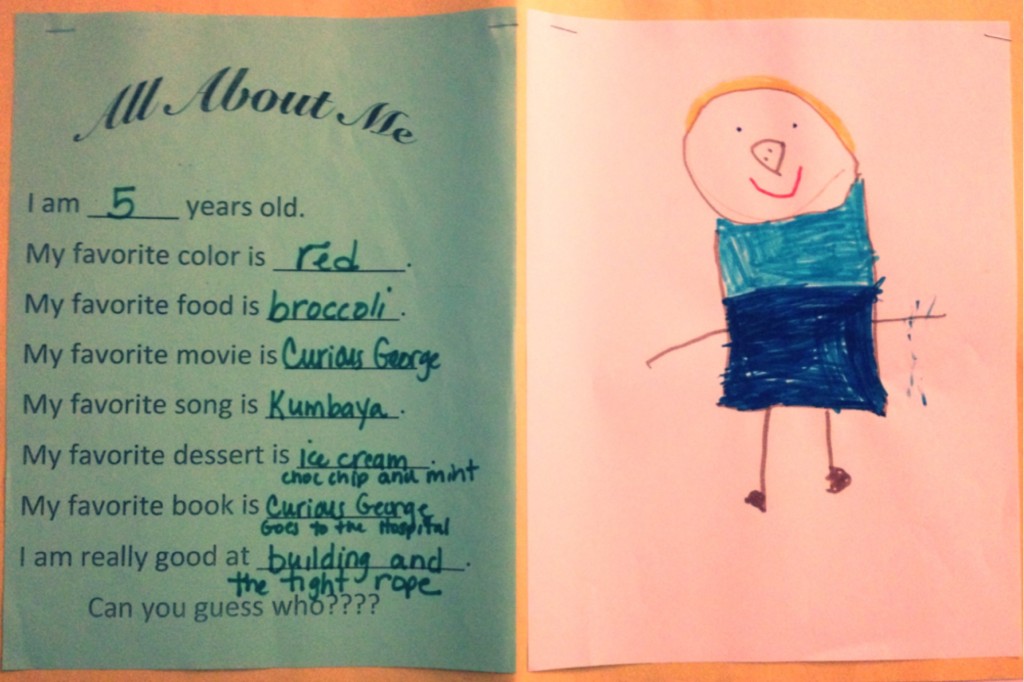 All About Me
I am 5 years old.
My favorite color is red.
My favorite food is broccoli.
My favorite movie is Curious George
My favorite song is Kumbaya.
My favorite dessert is ice cream.
choc chip and mint
My favorite book is Curious George
Goes to the Hospital
I am really good at building and.
the tight rope
Can you guess who????